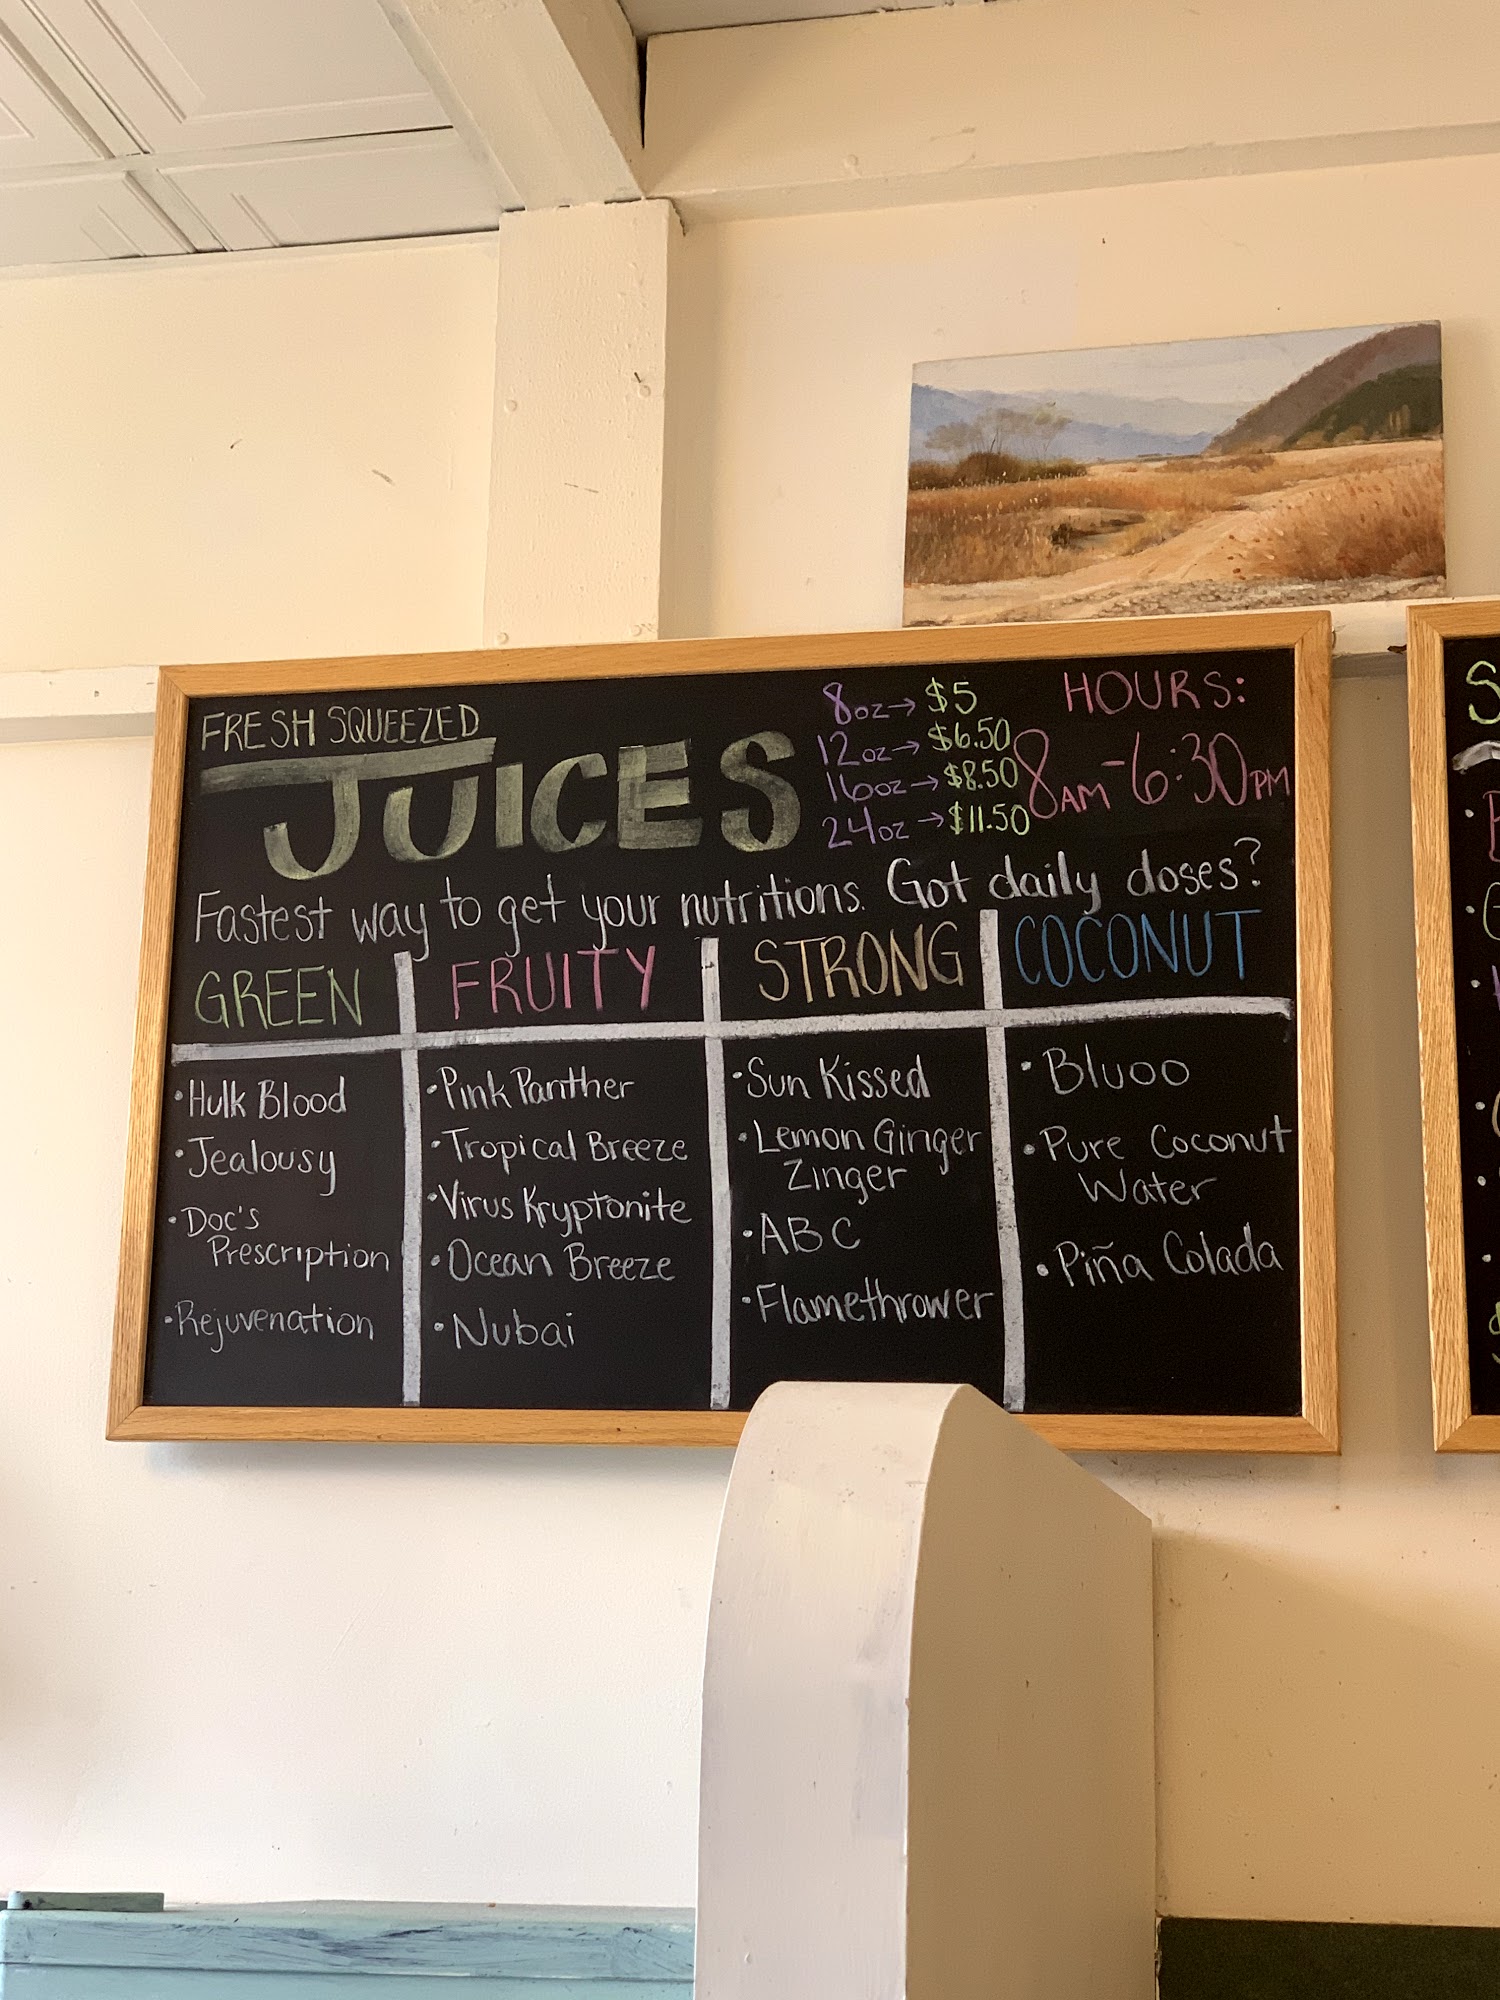 FRESH SQUEEZED
JUICES
8oz→ $5
12oz→ $6.50
16oz→ $8.50
24oz→ $11.50
HOURS:
8AM-6:30PM
Fastest way to get your nutritions. Got daily doses?
GREEN
•Hulk Blood
•Jealousy
•Doc's
Prescription
•Rejuvenation
FRUITY
•Pink Panther
•Tropical Breeze
•Virus Kryptonite
•Ocean Breeze
•Nubai
STRONG
•Sun Kissed
•Lemon Ginger
Zinger
•ABC
•Flamethrower
COCONUT
•Bluoo
•Pure Coconut
Water
•Piña Colada